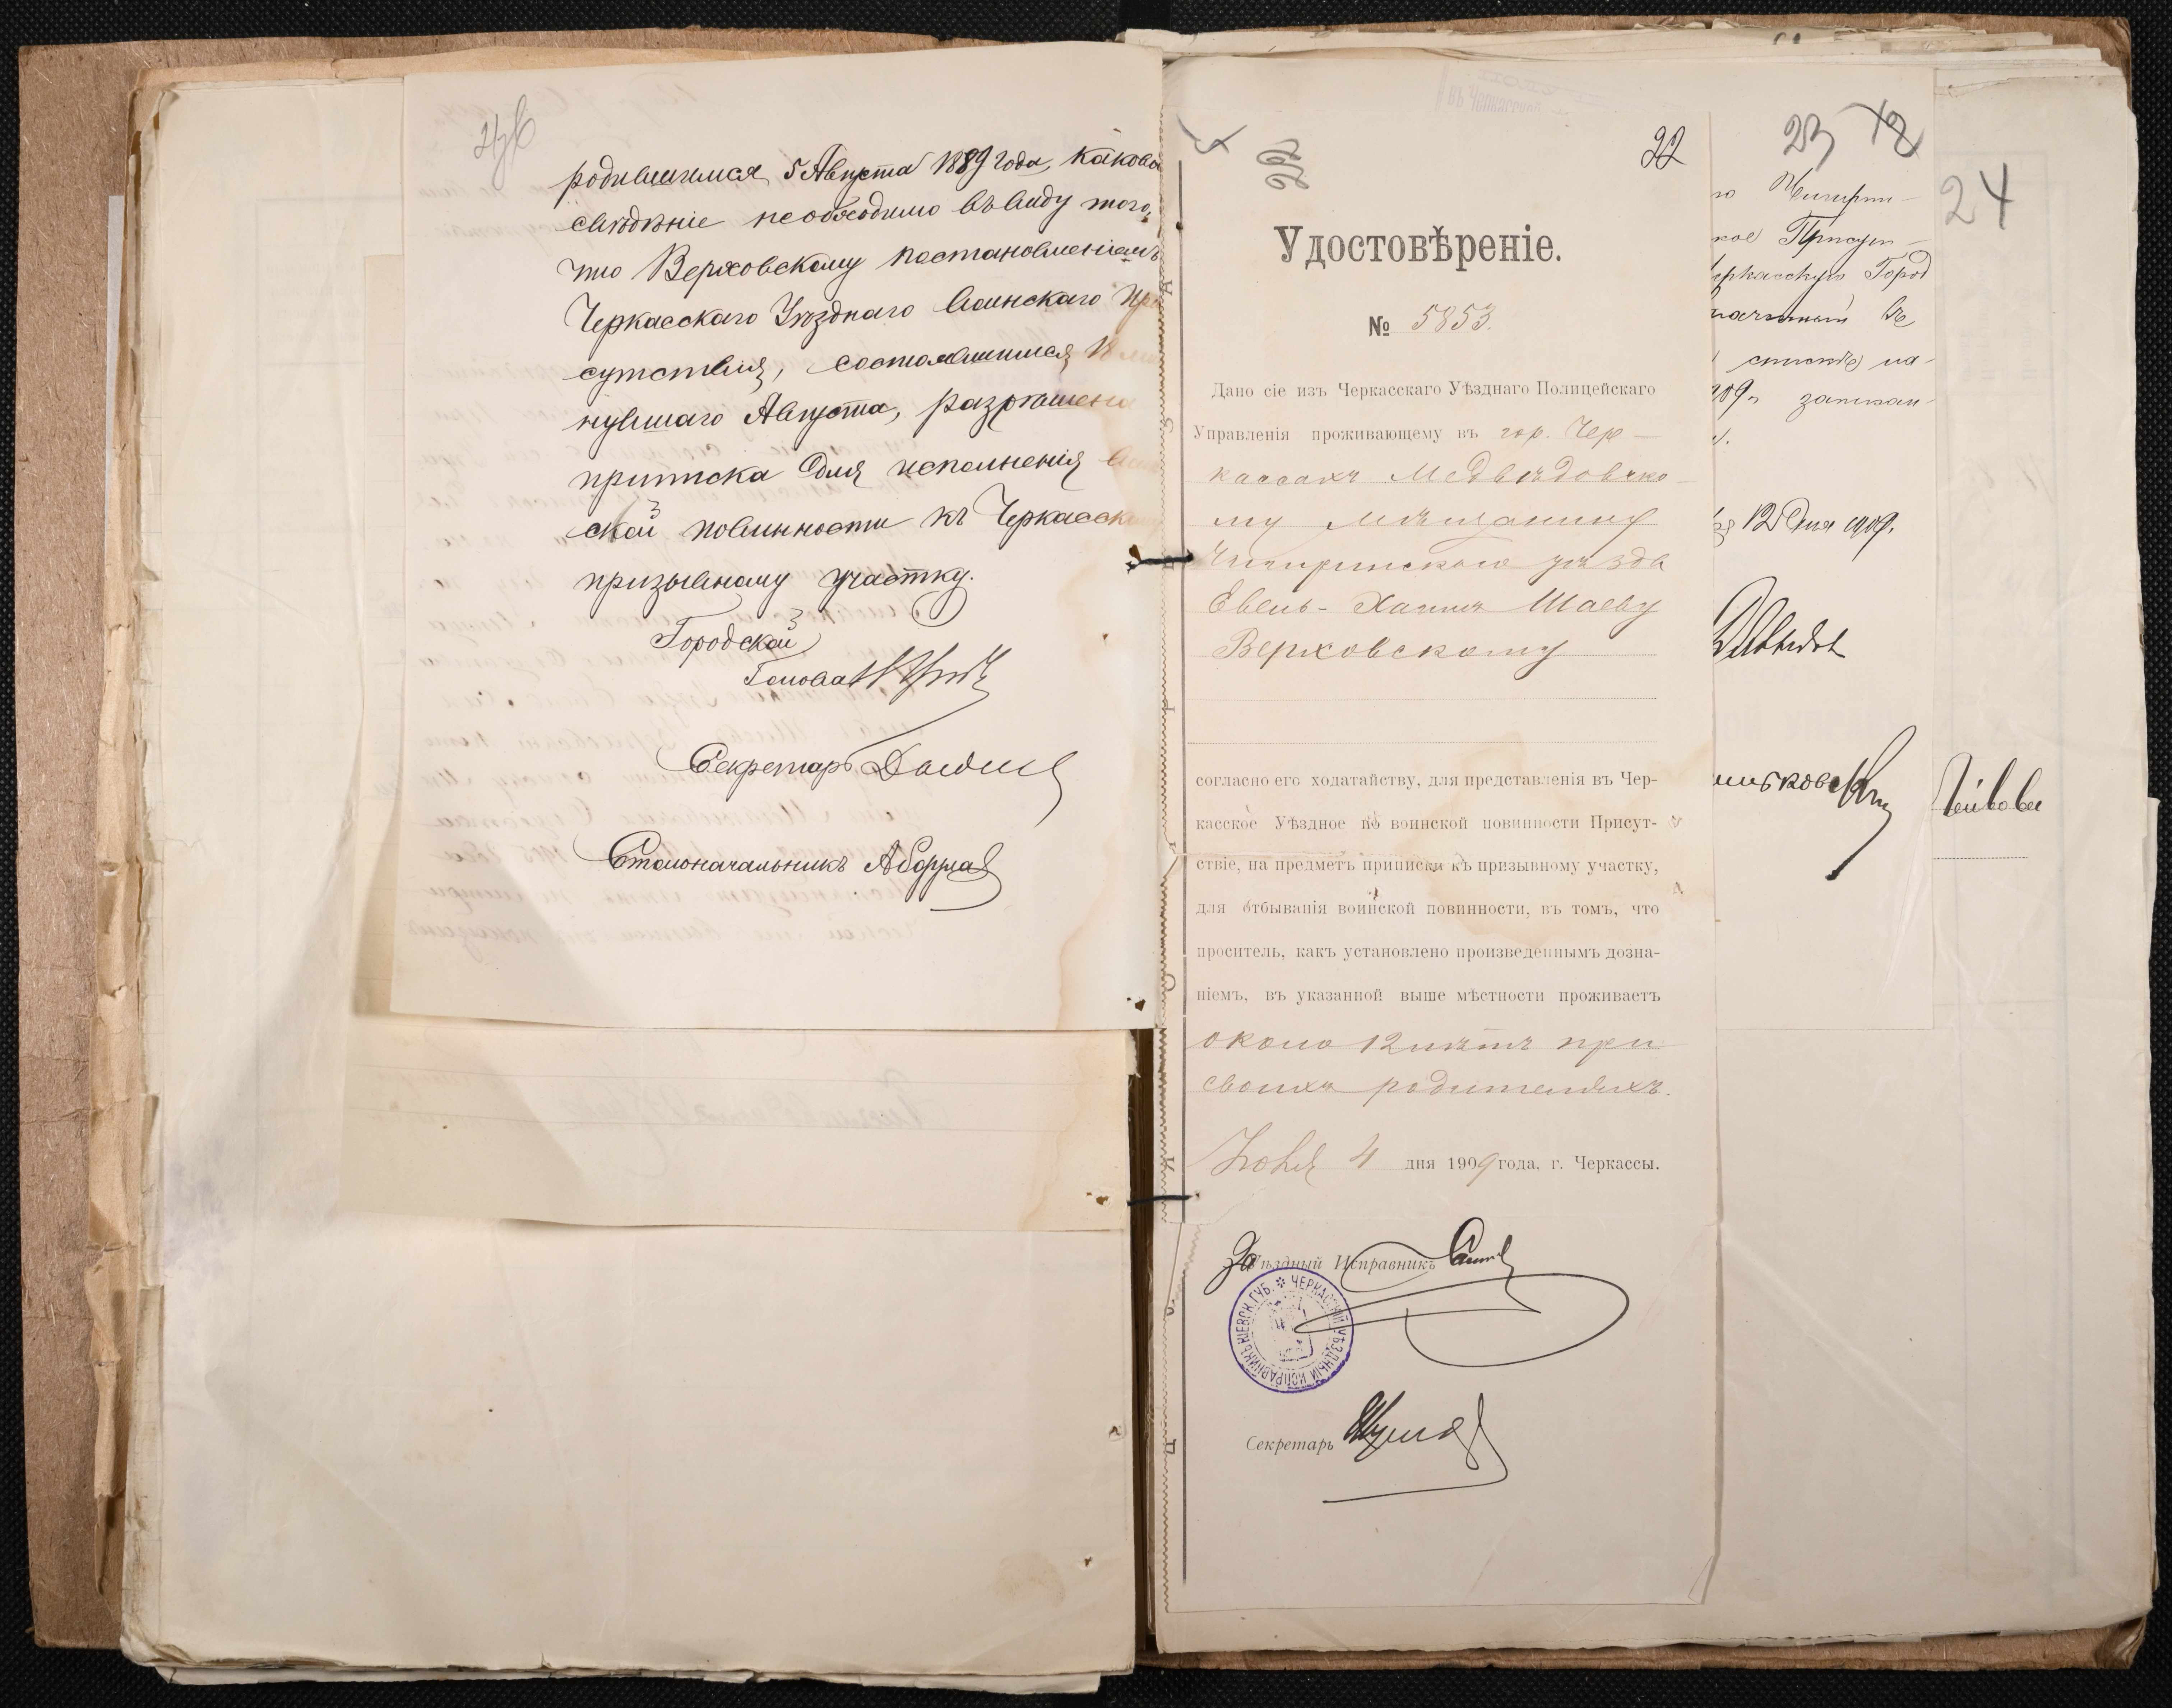 родившимся 5 Августа 1889 года, каково
свѣдѣніе необходимо въ виду того,
что Верховскому постановленіемъ
Черкасскаго Уѣзднаго Воинскаго При
сутствія, состоявшимся 18 ми
нувшаго Августа, разрѣшена
приписка для исполненія Воин
ской повинности къ Черкасском
призывному участку.
Городской
Голова
Секретарь
Столоначальникъ
22
22
Удостовѣреніе.
№ 5853.
Дано сіе изъ Черкасскаго Уѣзднаго Полицейскаго
Управленія проживающему въ гор. Чер-
кассахъ Медвѣдовско-
му мѣщанину
Чигиринскаго уѣзда
Евель-Хаимъ Шаеву
Верховскому
согласно его ходатайству, для представленія въ Чер-
касское Уѣздное по воинской повинности Присут-
ствіе, на предметъ приписки къ призывному участку,
для отбыванія воинской повинности, въ томъ, что
проситель, какъ установлено произведеннымъ дозна-
ніемъ, въ указанной выше мѣстности проживаетъ
около 12 лѣтъ при
своихъ родителяхъ.
Іюля 4 дня 1909 года, г. Черкассы.
За Уѣздный Исправникъ
КІЕВСК. ГУБ. * ЧЕРКАССКІЙ УѢЗДНЫЙ ИСПРАВНИКЪ
Секретарь
23
Чигирин-
кое Присут-
еркасскую Город
спискѣ на-
909 г. записан-
12 дня 1909.
24